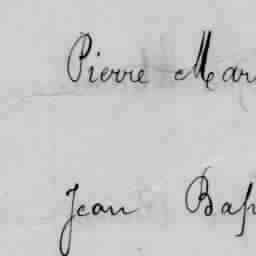 Pierre Mar
Jean Bap